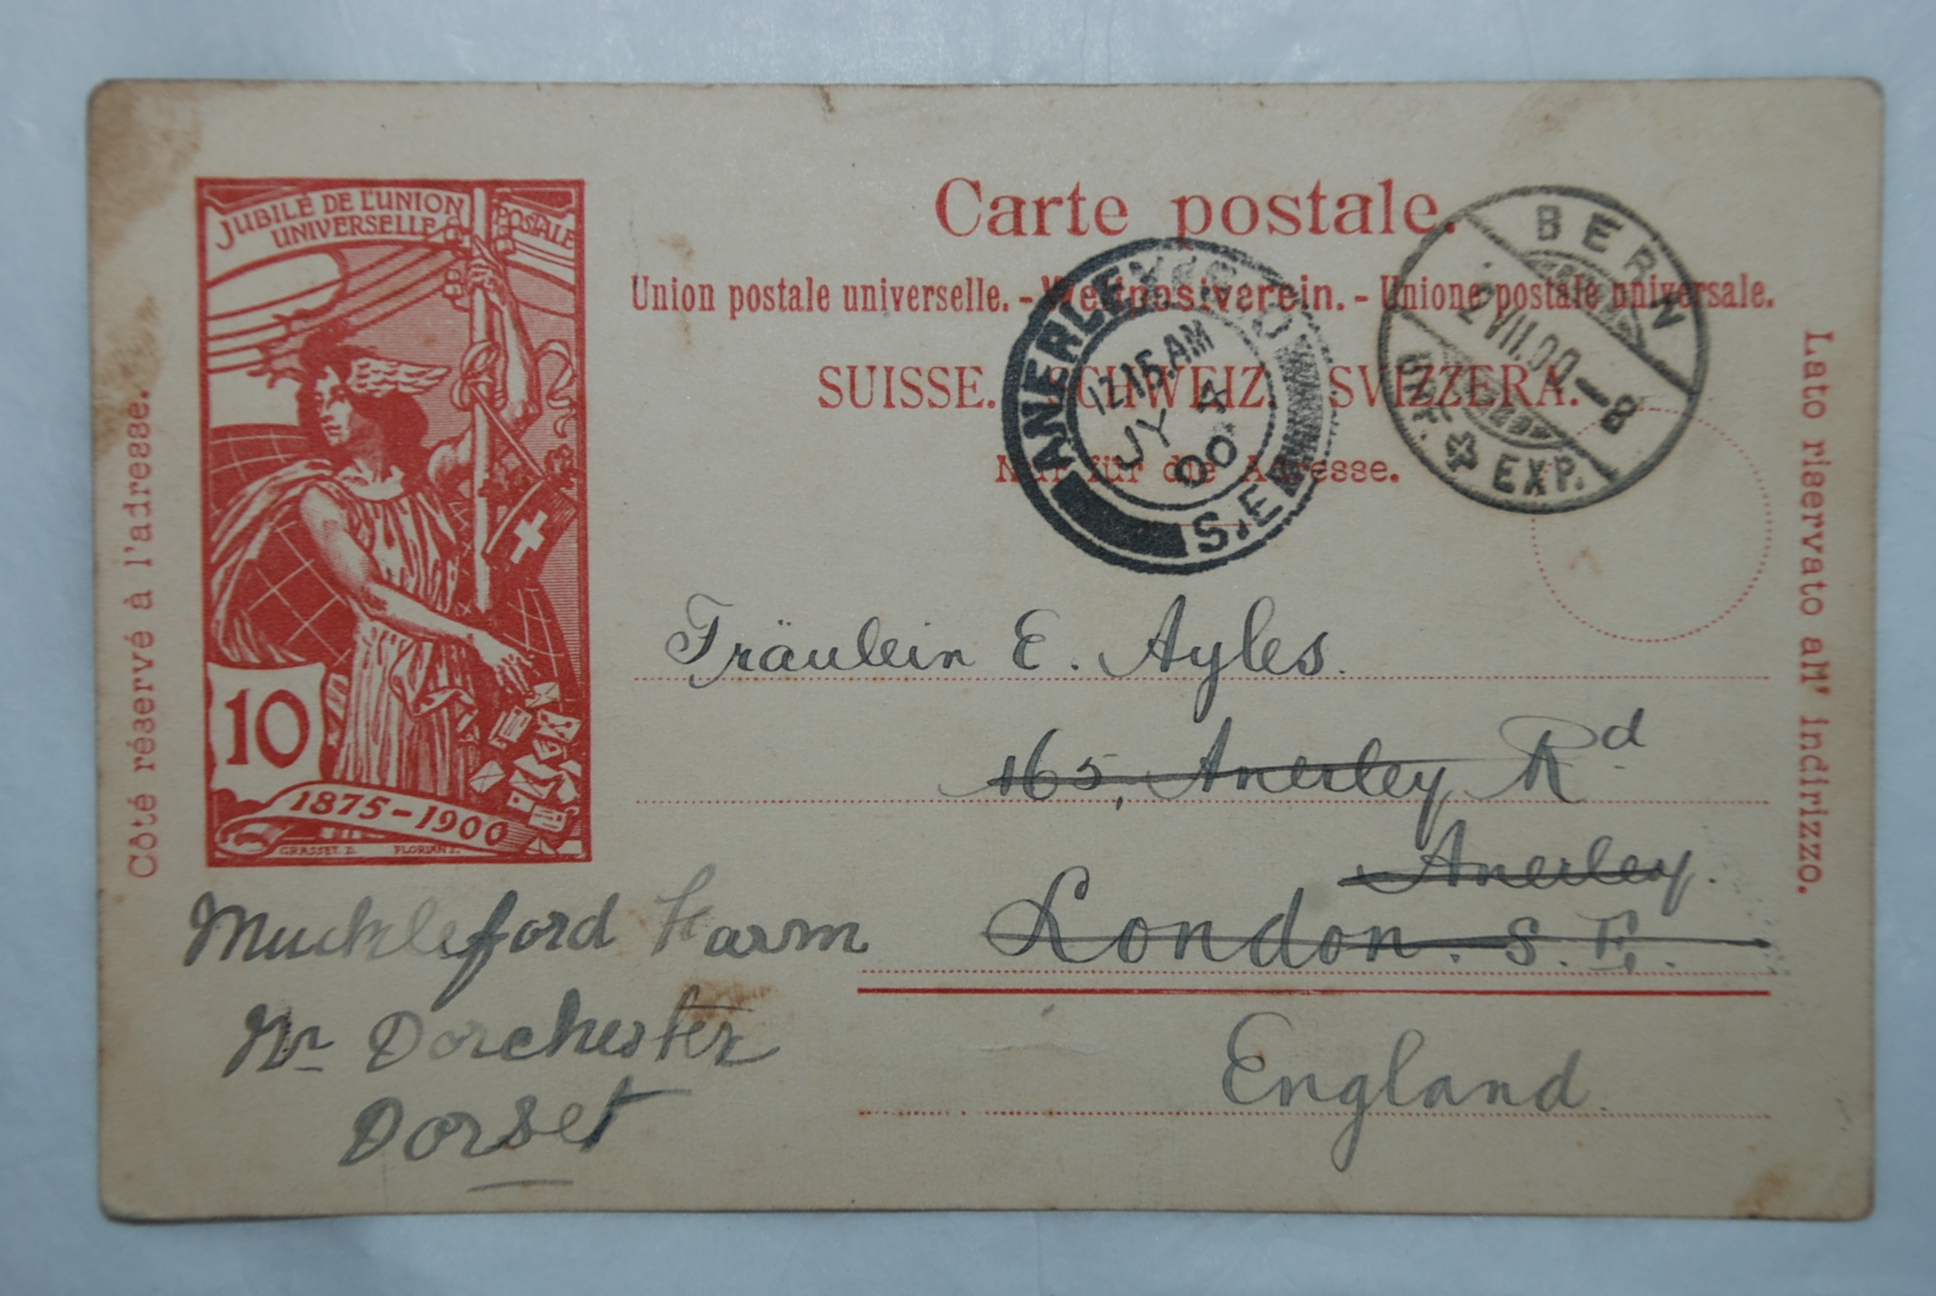 JUBILÉ DE L'UNION POSTALE
UNIVERSELLE
10
1875-1900
GRASSET. D. FLORIAN S.
Côté réservé à l'adresse.
Carte postale.
Union postale universelle. - Weltpostverein. - Unione postale universale.
SUISSE. SCHWEIZ. SVIZZERA.
Nur für die Adresse.
Lato riservato all' indirizzo.
ANERLEY S.E
12.15.AM
JY 4
00
BERN
2 VII.00-8
EXP.
Fräulein E. Ayles.
165, Anerley Rd
Anerley.
London. S. E.
England.
Muckleford Farm
Nr Dorchester
Dorset